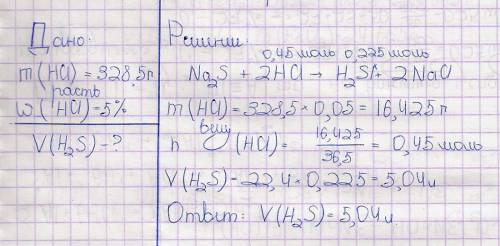 Дано:
m(HCl) = 328,5г
расть
ω(HCl) = 5%
V(H₂S) - ?
Решении:
0,45 моль 0,225 моль
Na₂S + 2HCl → H₂S↑ + 2NaCl
m(HCl) = 328,5 · 0,05 = 16,425 г
вещ
n (HCl) = 16,425 / 36,5 = 0,45 моль
V(H₂S) = 22,4 · 0,225 = 5,04 л
Ответ: V(H₂S) = 5,04 л.